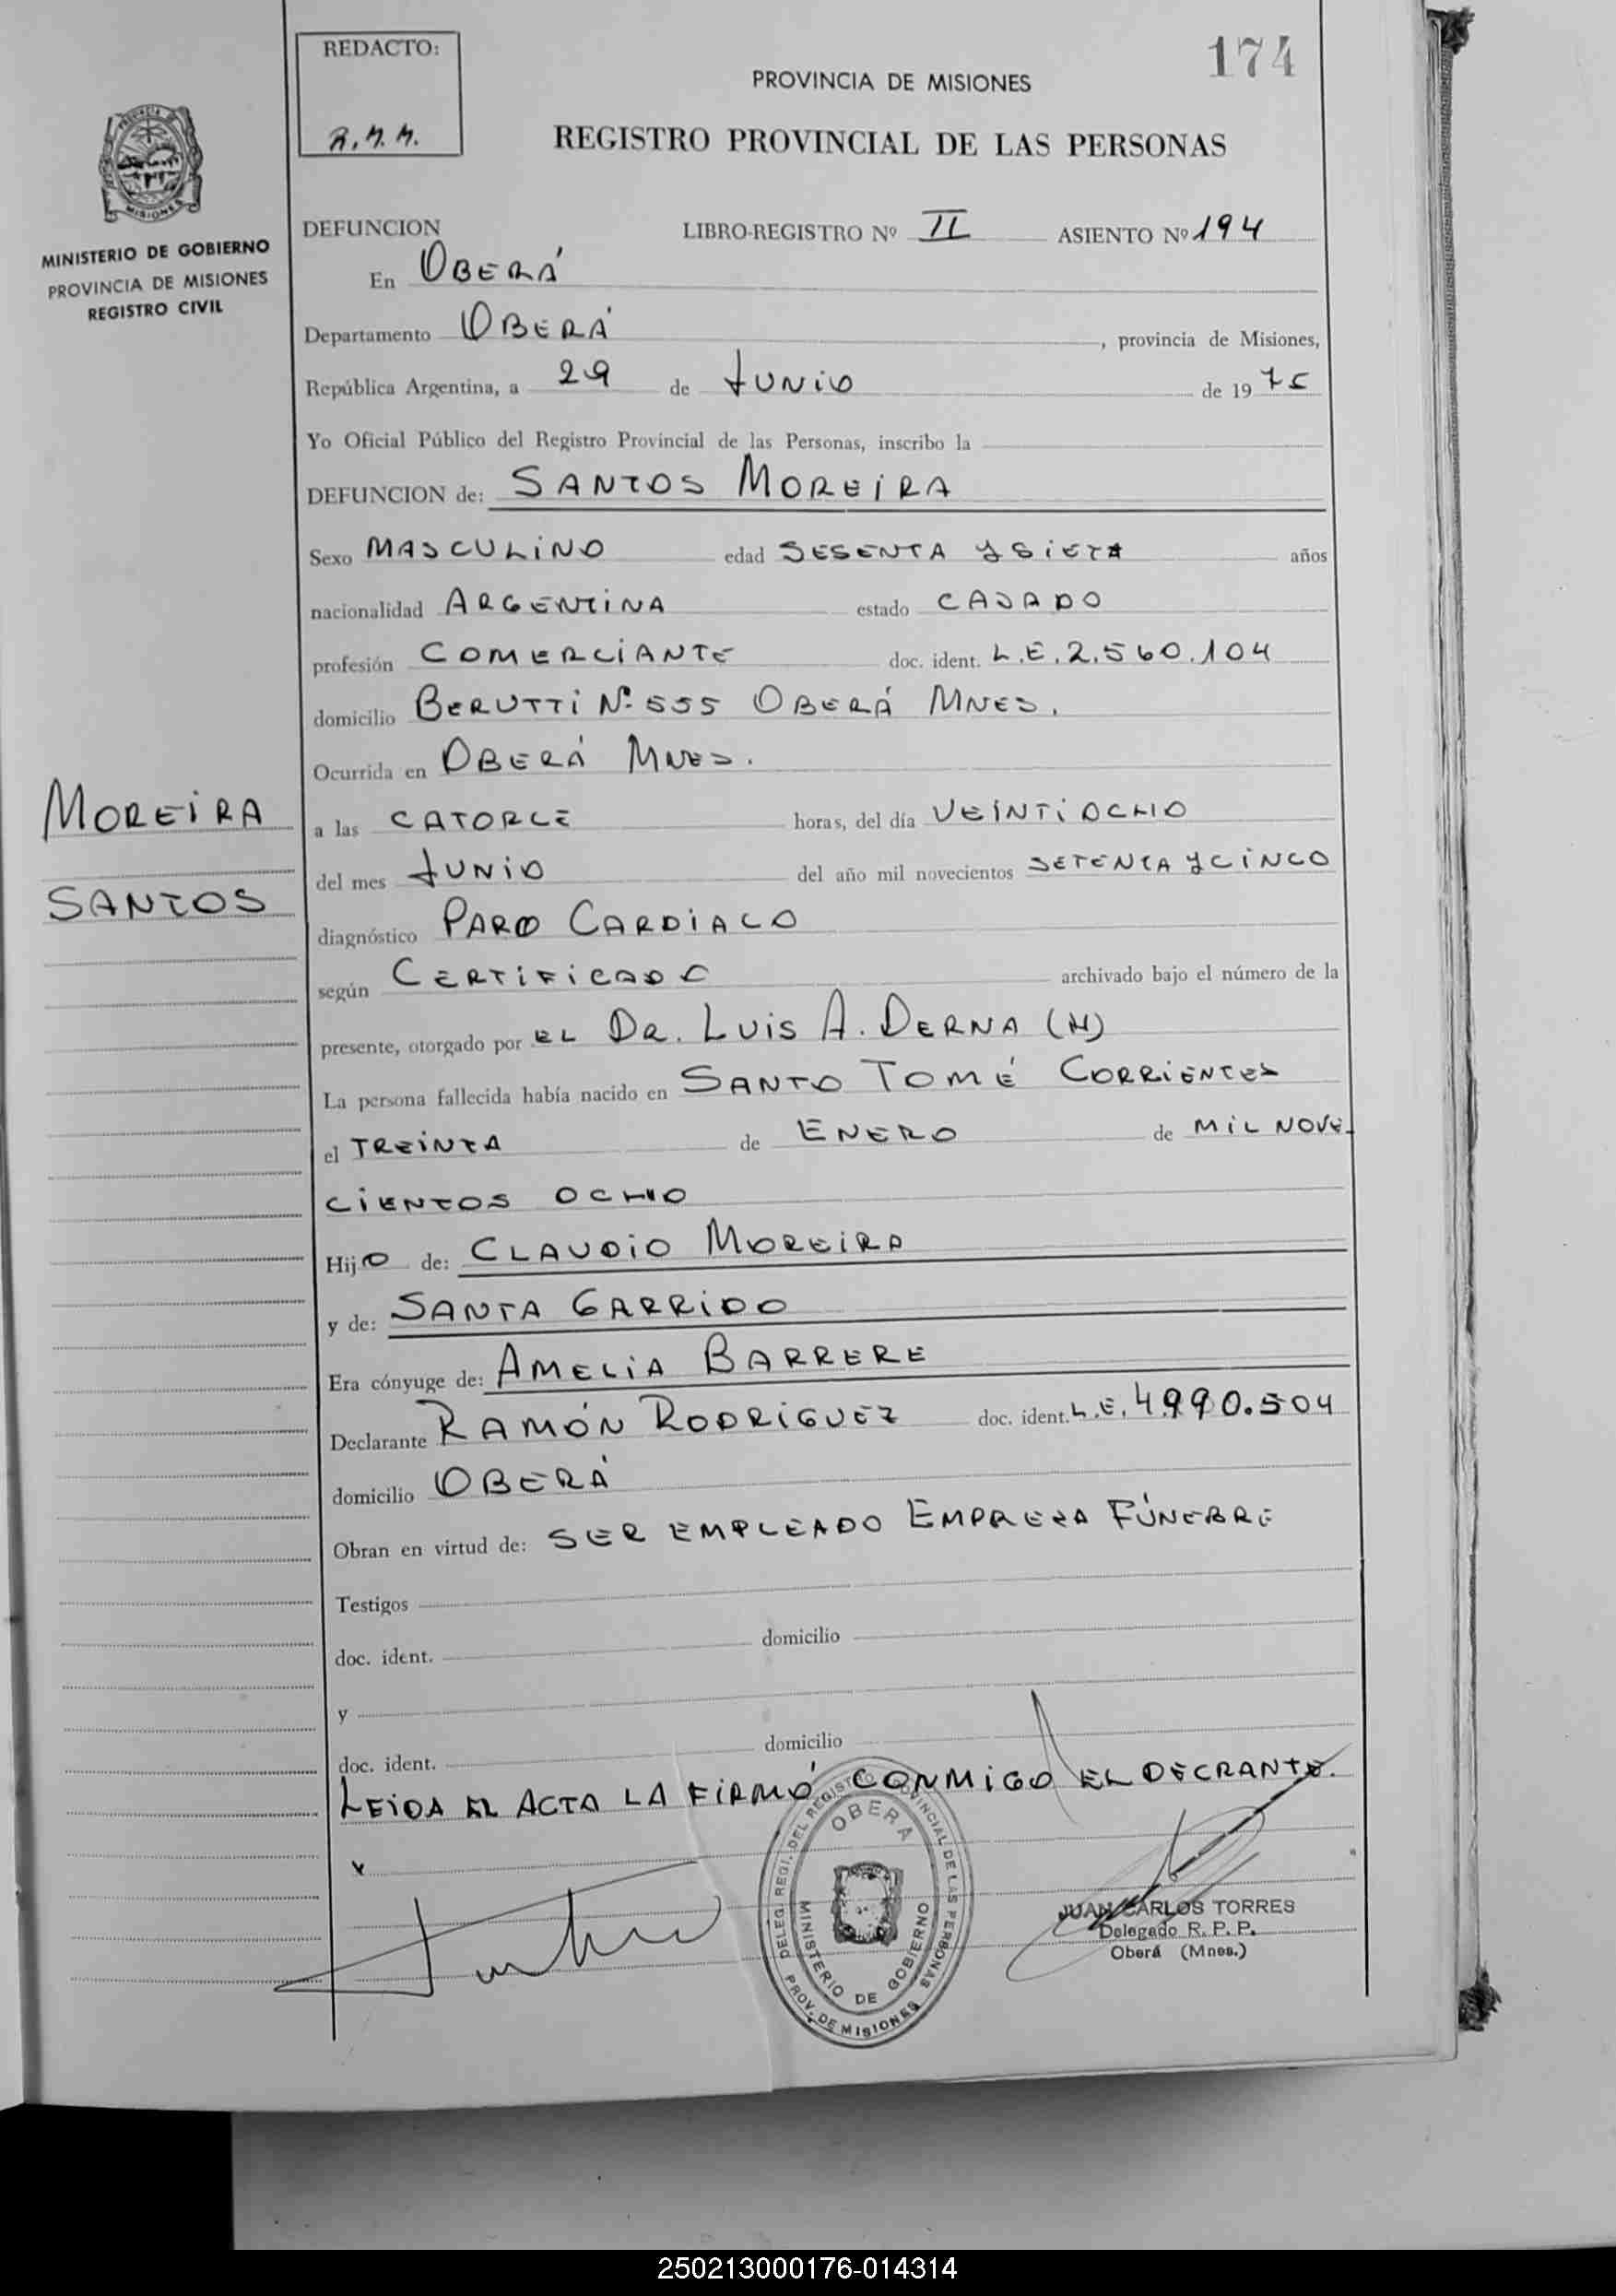 REDACTO:
R.M.M.
174
PROVINCIA DE MISIONES
REGISTRO PROVINCIAL DE LAS PERSONAS
MISIONES
MINISTERIO DE GOBIERNO
PROVINCIA DE MISIONES
REGISTRO CIVIL
DEFUNCION LIBRO-REGISTRO Nº II ASIENTO Nº 194
En OBERÁ
Departamento OBERÁ , provincia de Misiones,
República Argentina, a 29 de JUNIO de 1975
Yo Oficial Público del Registro Provincial de las Personas, inscribo la
DEFUNCION de: SANTOS MOREIRA
Sexo MASCULINO edad SESENTA Y SIETE años
nacionalidad ARGENTINA estado CASADO
profesión COMERCIANTE doc. ident. L.E. 2.560.104
domicilio BERUTTI Nº 555 OBERÁ MNES.
Ocurrida en OBERÁ MNES.
MOREIRA
SANTOS
a las CATORCE horas, del día VEINTIOCHO
del mes JUNIO del año mil novecientos SETENTA Y CINCO
diagnóstico PARO CARDIACO
según CERTIFICADO archivado bajo el número de la
presente, otorgado por EL DR. LUIS A. DERNA (H)
La persona fallecida había nacido en SANTO TOMÉ CORRIENTES
el TREINTA de ENERO de MIL NOVE-
CIENTOS OCHO
Hijo de: CLAUDIO MOREIRA
y de: SANTA GARRIDO
Era cónyuge de: AMELIA BARRERE
Declarante RAMÓN RODRIGUEZ doc. ident. L.E. 4.990.504
domicilio OBERÁ
Obran en virtud de: SER EMPLEADO EMPRESA FÚNEBRE
Testigos
doc. ident. domicilio
y
doc. ident. domicilio
LEIDA EL ACTA LA FIRMÓ CONMIGO EL DECRANTE.
DELEG. REGI. DEL REGISTRO PROVINCIAL DE LAS PERSONAS
OBERA
MINISTERIO DE GOBIERNO
PROV. DE MISIONES
JUAN CARLOS TORRES
Delegado R. P. P.
Oberá (Mnes.)
250213000176-014314